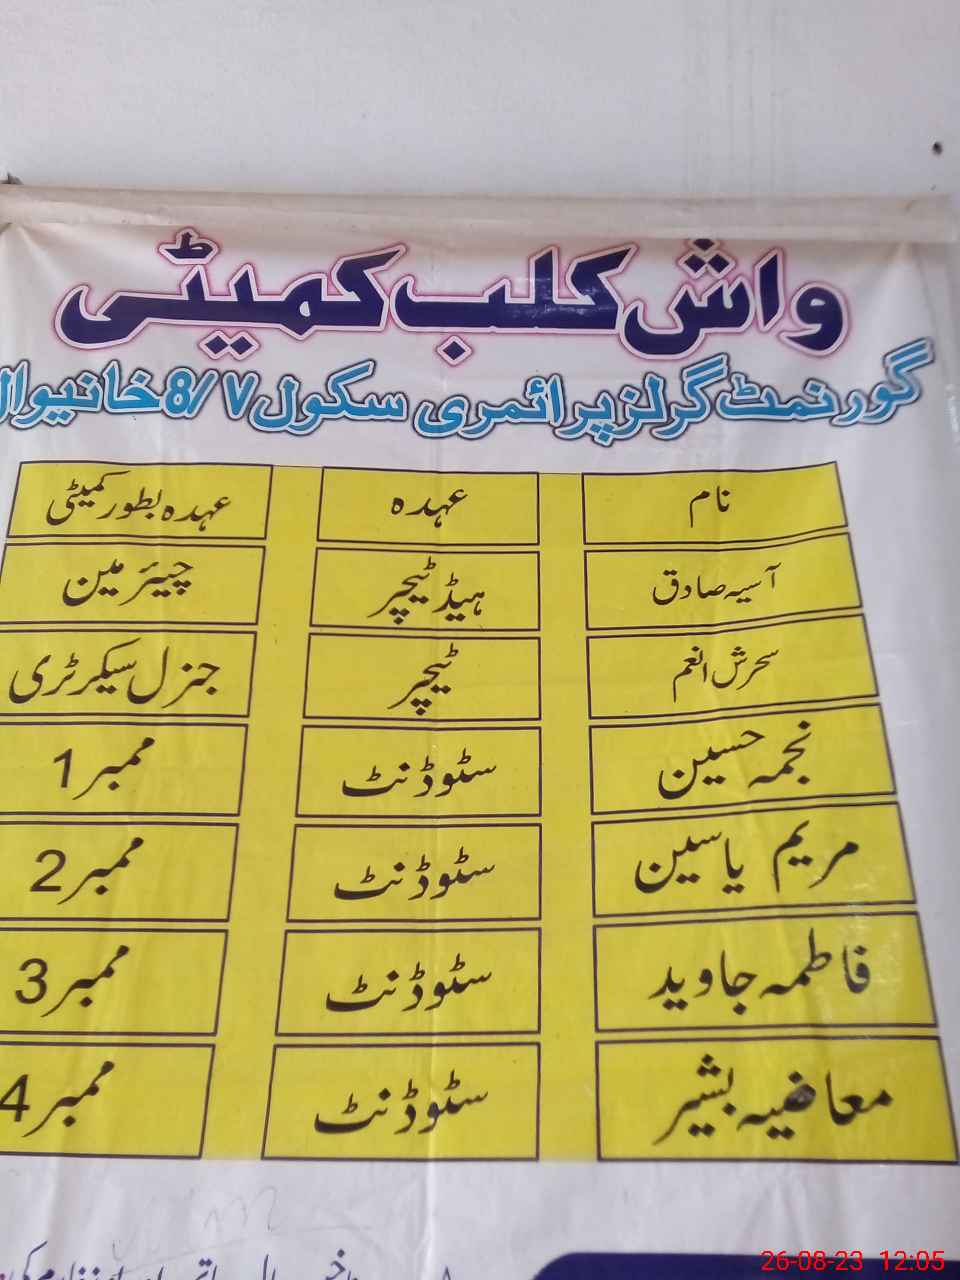 واش کلب کمیٹی
گورنمنٹ گرلز پرائمری سکول 8/V خانیوال
نام عہدہ عہدہ بطور کمیٹی
آسیہ صادق ہیڈ ٹیچر چیئرمین
سحرش انعم ٹیچر جنرل سیکرٹری
نجمہ حسین سٹوڈنٹ ممبر 1
مریم یاسین سٹوڈنٹ ممبر 2
فاطمہ جاوید سٹوڈنٹ ممبر 3
معاضیہ بشیر سٹوڈنٹ ممبر 4
26-08-23 12:05